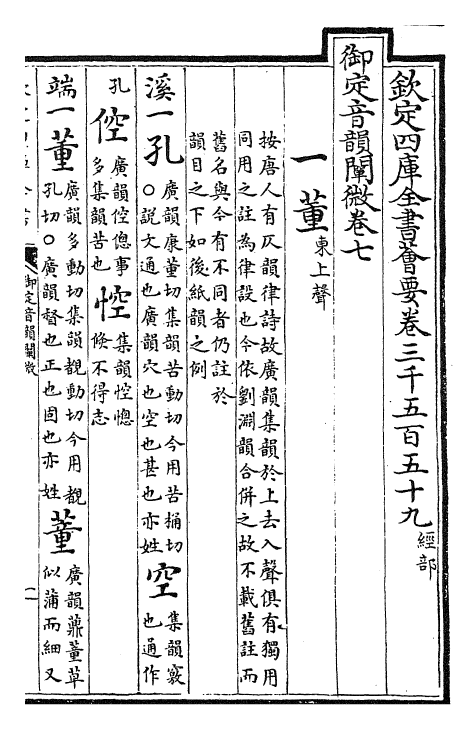 欽定四庫全書薈要卷三千五百五十九 經部
御定音韻闡微卷七
一董 東上聲
按唐人有仄韻律詩故廣韻集韻於上去入聲俱有獨用
同用之註為律設也今依劉淵韻合併之故不載舊註而
舊名與今有不同者仍註於
韻目之下如後紙韻之例
溪一孔 廣韻康董切集韻苦動切今用苦捅切
○說文通也廣韻穴也空也甚也亦姓
空 集韻竅
也通作
孔
倥 廣韻倥傯事
多集韻苦也
悾 集韻悾憁
倏不得志
端一董 廣韻多動切集韻覩動切今用覩
孔切○廣韻督也正也固也亦姓
蕫 廣韻蘱蕫草
似蒲而細又
御定音韻闡微
一